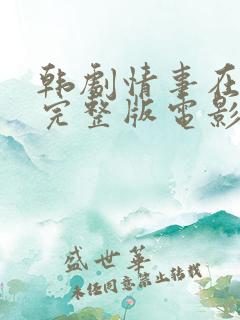 韩剧情事在
完整版电影
盛世华
未经同意禁止转载